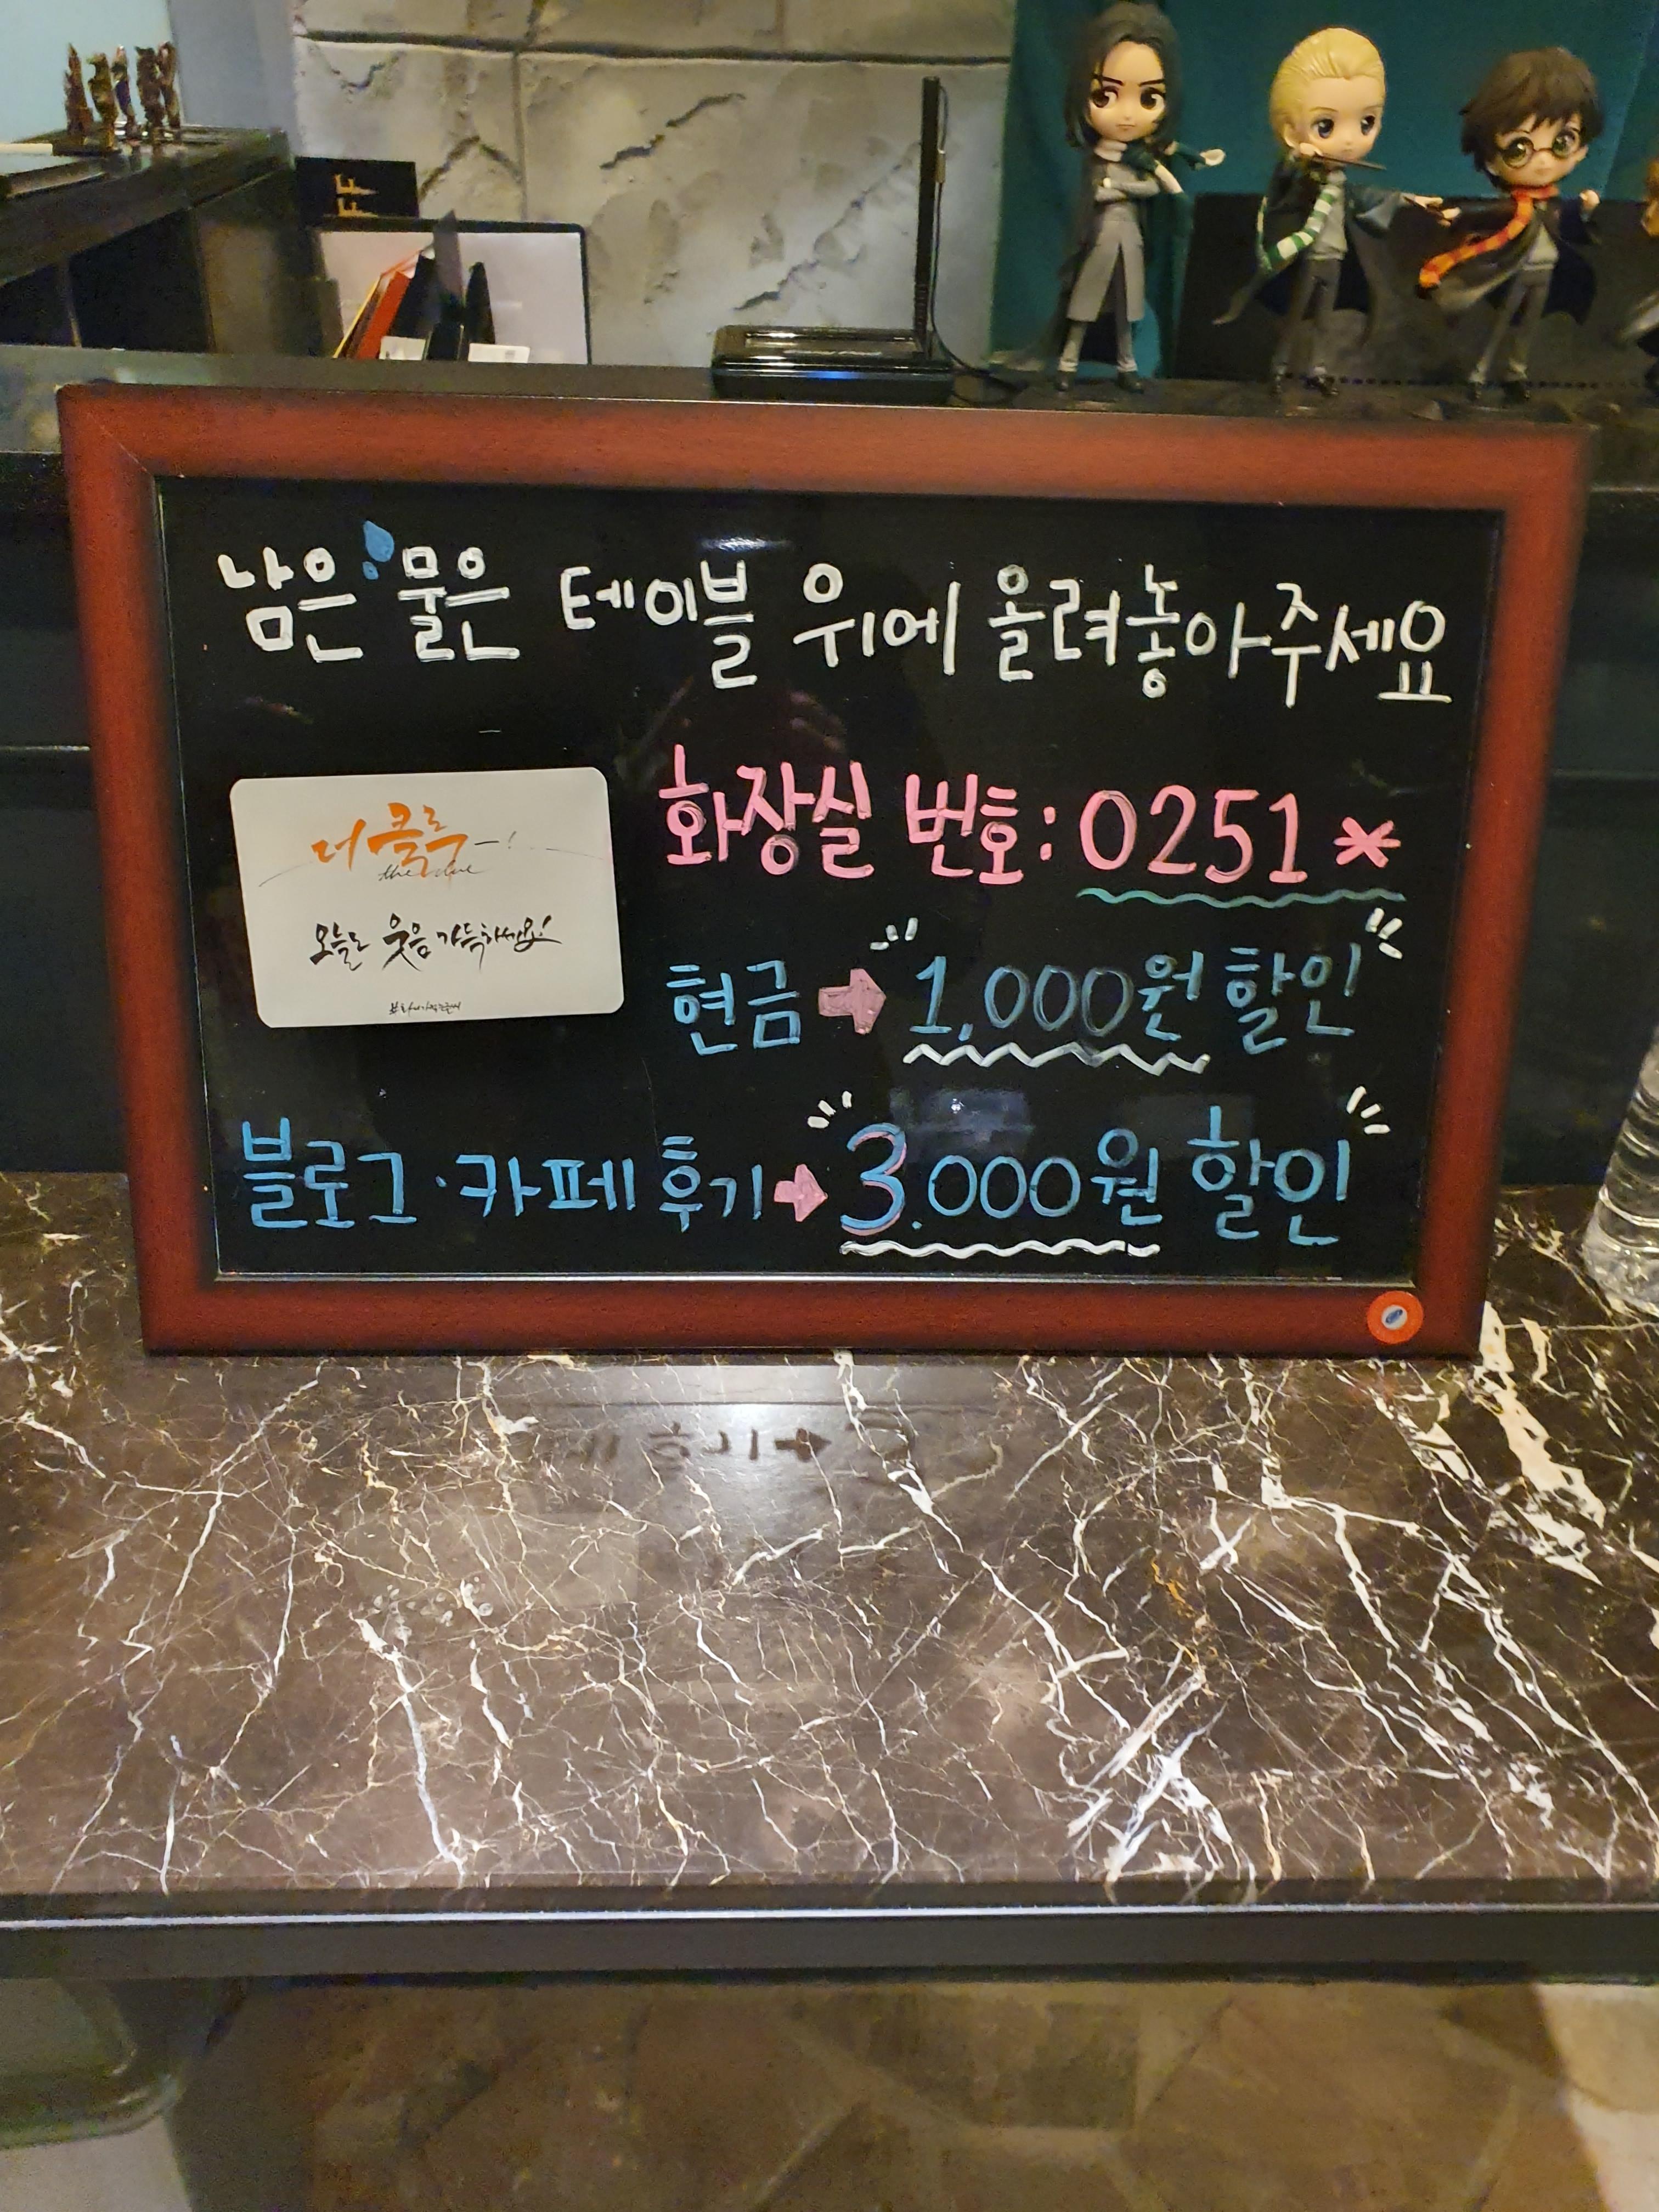 남은 물은 테이블 위에 올려놓아주세요
더클루
the clue
오늘도 웃음 가득하세요!
화장실 번호: 0251*
현금 → 1,000원 할인
블로그·카페 후기 → 3.000원 할인